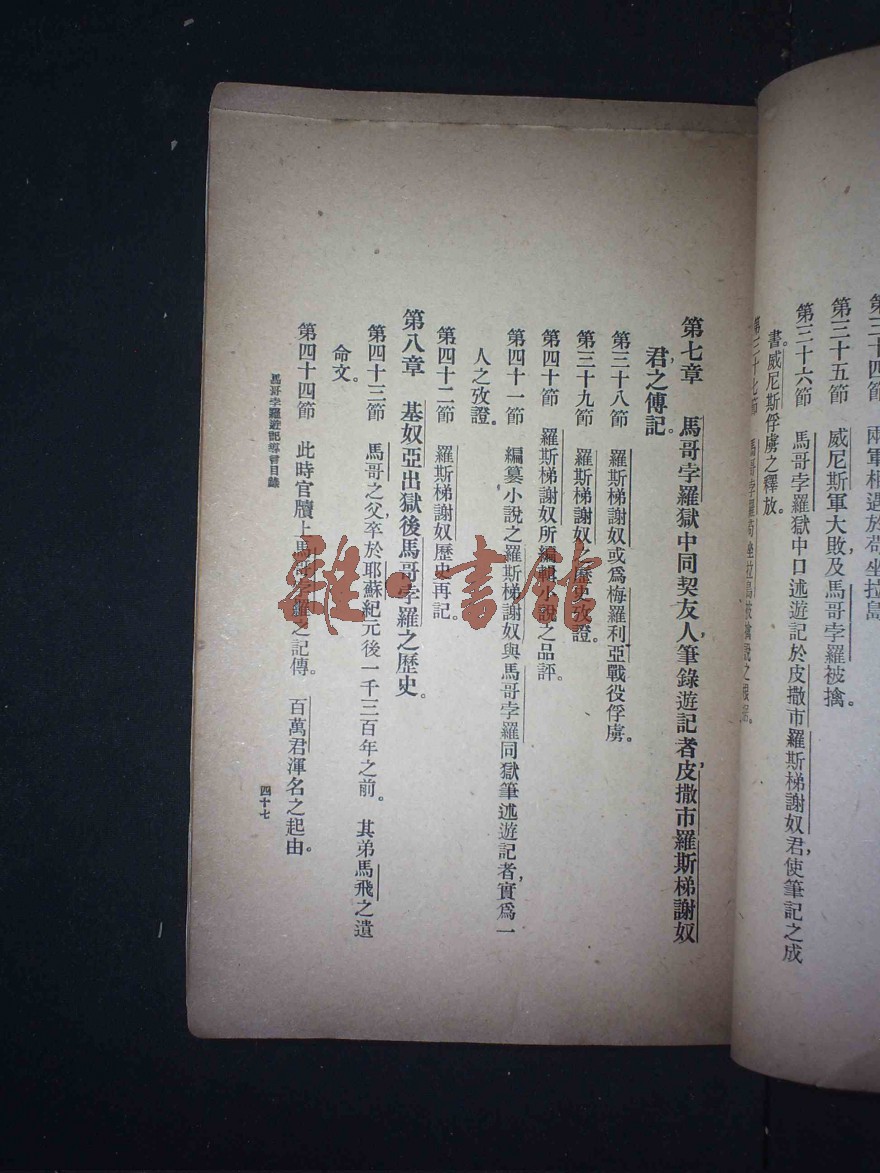 第三十四節　兩軍相遇於苟坐拉島
第三十五節　威尼斯軍大敗，及馬哥孛羅被擒。
第三十六節　馬哥孛羅獄中口述遊記於皮撒市羅斯梯謝奴君，使筆記之成
書。威尼斯俘虜之釋放。
第三十七節　馬哥孛羅苟坐拉島被擒說之根
第七章　馬哥孛羅獄中同契友人，筆錄遊記者，皮撒市羅斯梯謝奴
君之傳記。
第三十八節　羅斯梯謝奴或爲梅羅利亞戰役俘虜。
第三十九節　羅斯梯謝奴之歷史攷證。
第四十節　羅斯梯謝奴所編輯小說之品評。
第四十一節　編纂小說之羅斯梯謝奴與馬哥孛羅同獄筆述遊記者，實爲一
人之攷證。
第四十二節　羅斯梯謝奴歷史再記。
第八章　基奴亞出獄後馬哥孛羅之歷史。
第四十三節　馬哥之父，卒於耶蘇紀元後一千三百年之前。其弟馬飛之遺
命文。
第四十四節　此時官牘上馬哥孛羅之記傳。百萬君渾名之起由。
馬哥孛羅遊記導言目錄
四十七
雜·書館